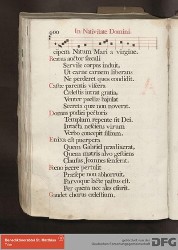 400 In Nativitate Domini
cipem Natum Maria virgine.
Beatus auctor sæculi
Servile corpus induit,
Ut carne carnem liberans
Ne perderet quos condidit.
Castæ parentis viscera
Cœlestis intrat gratia,
Venter puellæ bajulat
Secreta quæ non noverat.
Domus pudici pectoris
Templum repente fit Dei,
Intacta nesciens virum
Verbo concepit filium.
Enixa est puerpera
Quem Gabriel prædixerat,
Quem matris alvo gestiens
Clausus Joannes senserat.
Fœno jacere pertulit
Præsepe non abhorruit,
Parvoque lacte pastus est
Per quem nec ales esurit.
Gaudet chorus cœlestium.
Benediktinerabtei St. Matthias
Trier
DFG